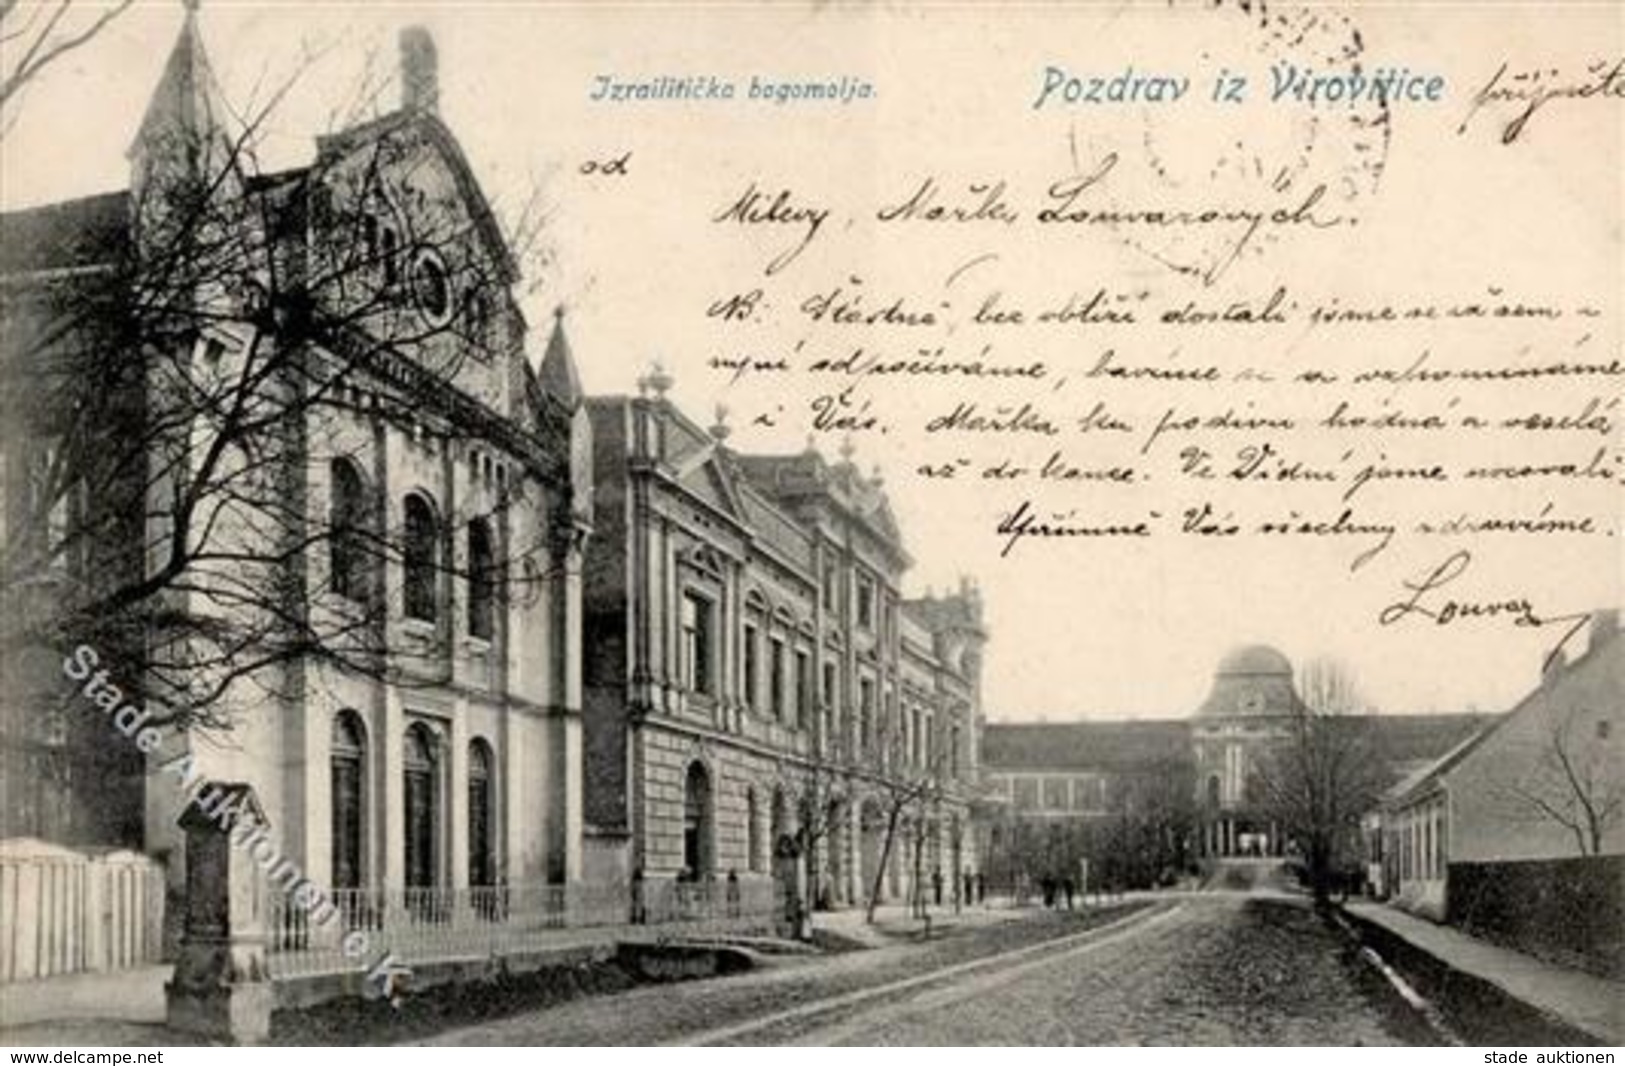 Izrailitička bogomolja.
Pozdrav iz Virovitice
přijměte
od
Milevy, Mařky Louvarových.
NB: Šťastně, bez obtíží dostali jsme se sem a
nyní odpočíváme, bavíme se a vzpomínáme
i Vás. Mařka ku podivu hodná a veselá
až do konce. Ve Vídni jsme nocovali.
Upřímně Vás všechny zdravíme.
Louvar
Stade Auktionen e.K.
www.delcampe.net
stade auktionen